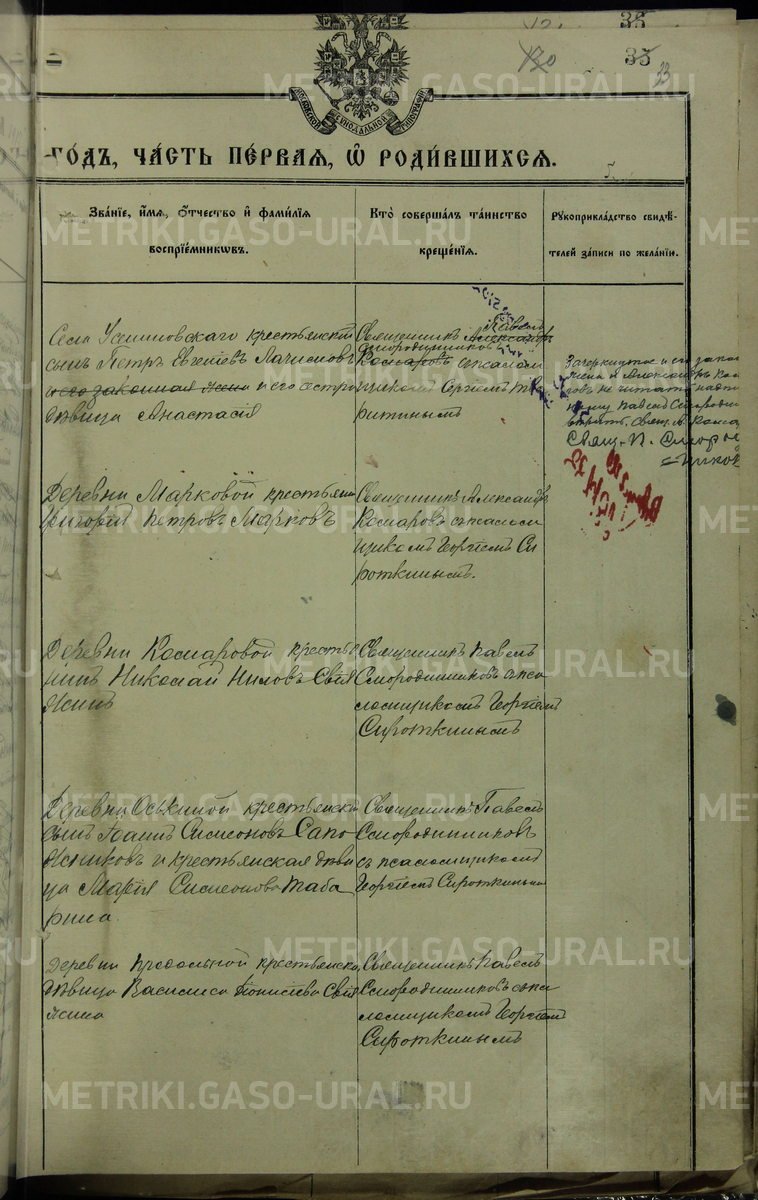 35
120
35
33
МОСКОВСКОЙ СѴНОДАЛЬНОЙ ТИПОГРАФІИ
ГО́ДЪ, ЧА́СТЬ ПЕ́РВАЯ, Ѽ РОДИ́ВШИХСѦ.
Зва́нїе, и́мѧ, ѻ҆́тчество и҆ фами́лїѧ
воспрїе́мникѡвъ.
Кто̀ соверша́лъ та́инство
креще́нїѧ.
Рꙋкоприкла́дство свидѣ́-
телей за́писи по жела́нїю.
крестьянскій
сынъ Петръ Евгеніевъ
и его законная жена и его сестра
дѣвица Анастасія
Священникъ Павелъ Александръ
Смородинниковъ
Комаровъ съ псалом
щикомъ
Зачеркнутое и его закон
жена и Александръ Кома
ровъ не читать, надпи
Павелъ Смородин
вѣрить. Свящ. А. Кома
Свящ. П. Смород
инников
Деревни Марковой крестьянинъ
Григорій Петровъ Марковъ
Священникъ Александръ
Комаровъ съ псалом
щикомъ Георгіемъ Си
роткинымъ.
Деревни Комаровой крестья
нинъ Николай Ниловъ Свя
жинъ
Священникъ Павелъ
Смородинниковъ съ пса
ломщикомъ Георгіемъ
Сироткинымъ
Деревни Оськиной крестьянскій
сынъ Іоаннъ Симеоновъ Сапо
жниковъ и крестьянская дѣви
ца Марія Симеонова Таба
рина.
Священникъ Павелъ
Смородинниковъ
съ псаломщикомъ
Георгіемъ Сироткинымъ
Деревни крестьянская
дѣвица Василиса
жина
Священникъ Павелъ
Смородинниковъ съ пса
ломщикомъ Георгіемъ
Сироткинымъ
METRIKI.GASO-URAL.RU